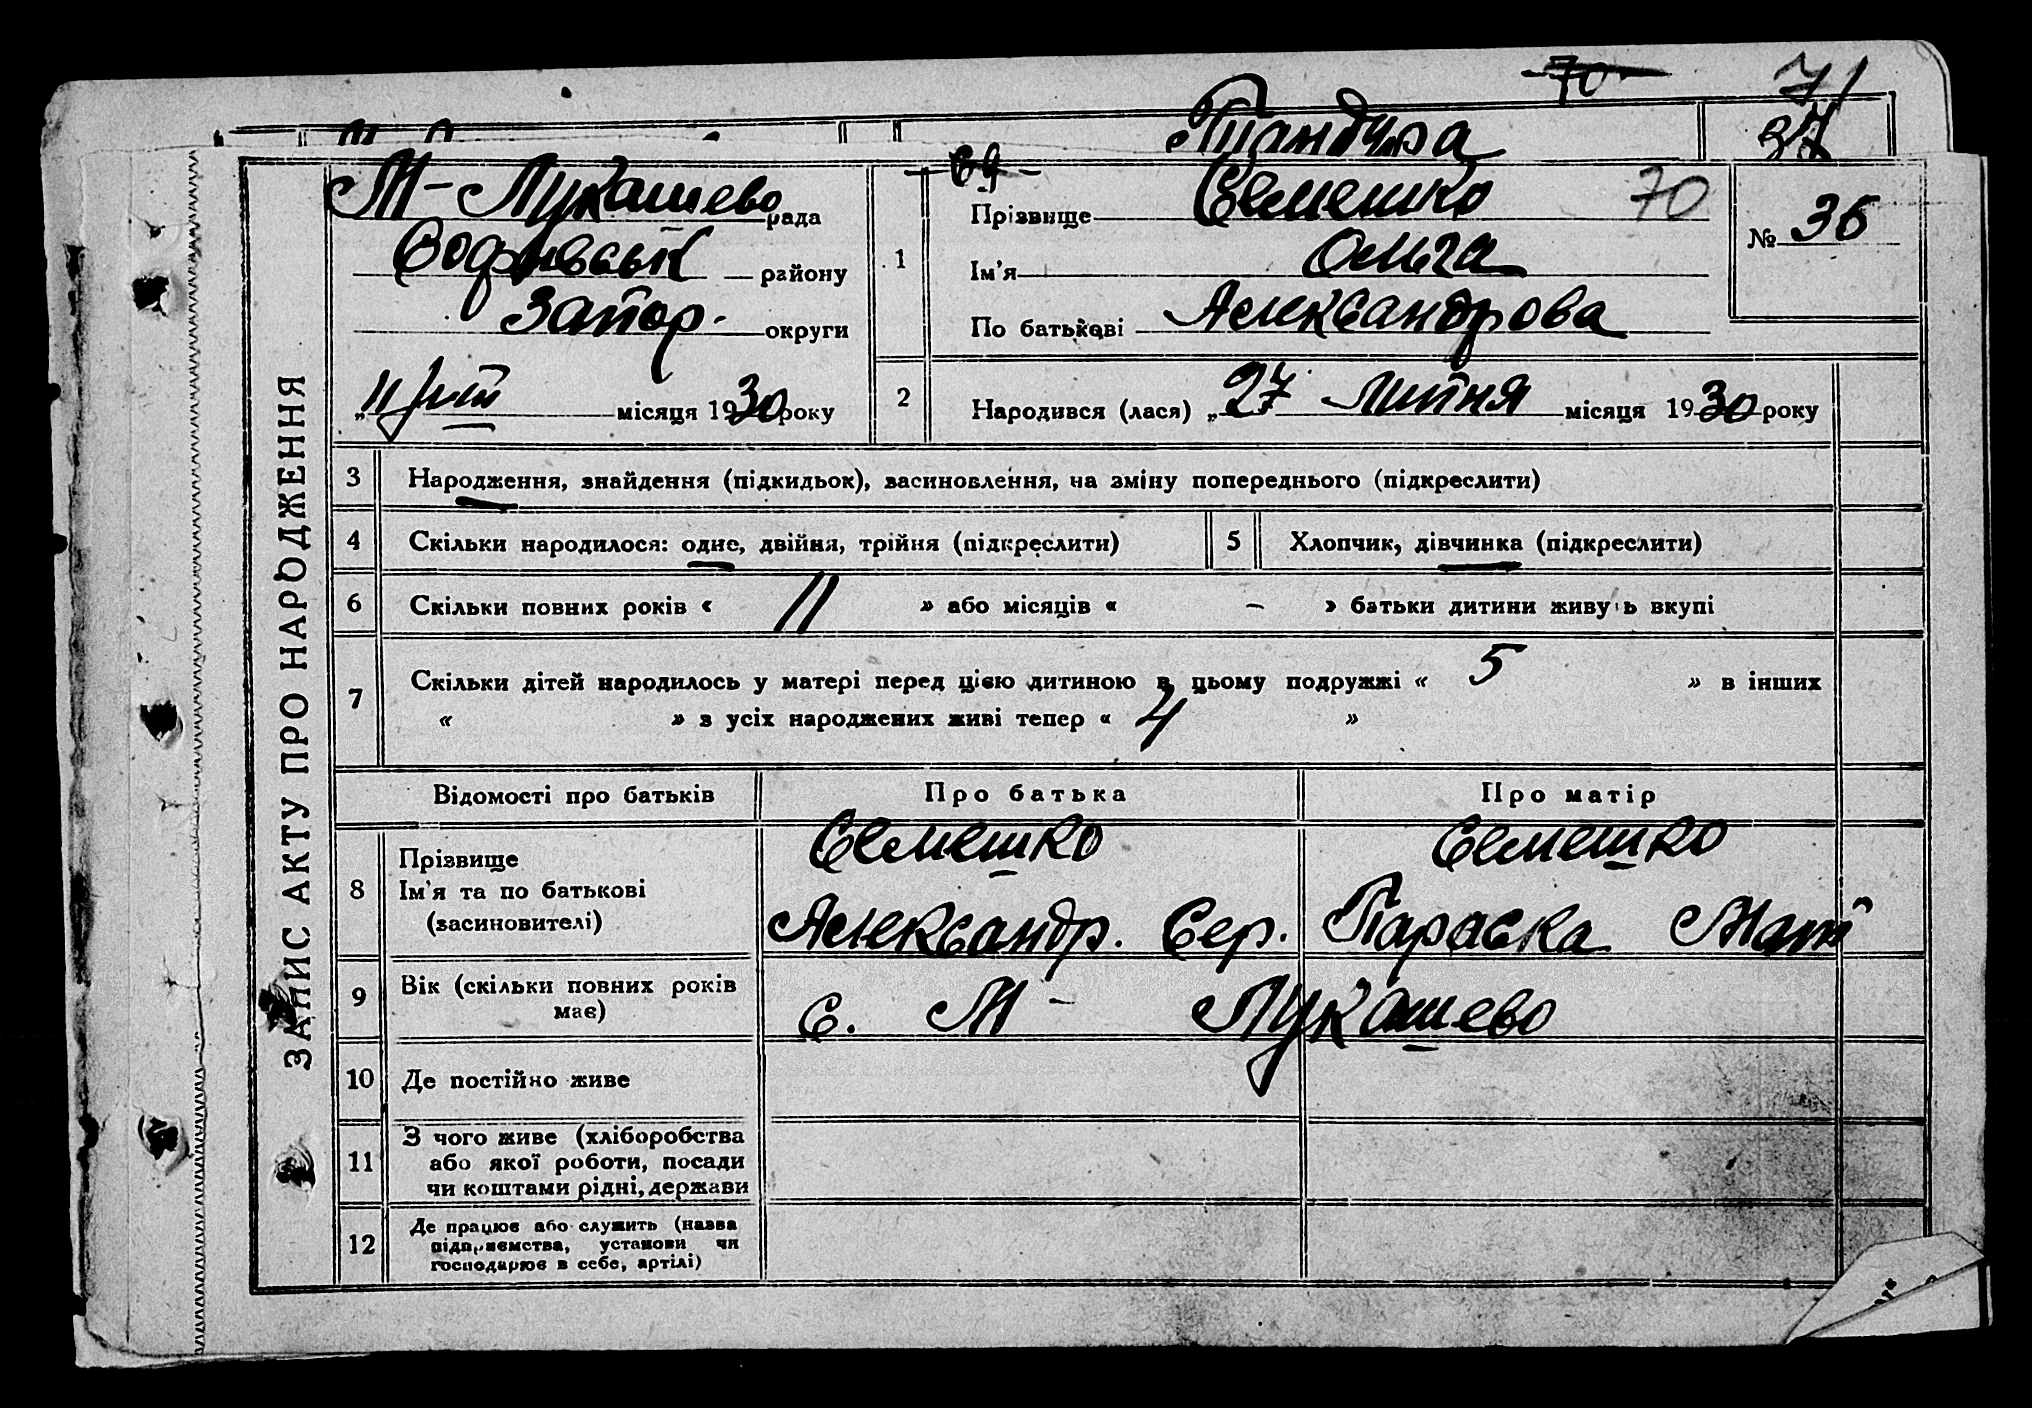 70 71
Тандура 37
69
М-Лукашево рада
Софиевськ району
Запор. округи
місяця 1930 року
1
Прізвище Семешко 70
Ім'я Ольга
По батькові Александрова
№ 36
2
Народився (лася) „27 Липня місяця 1930 року
ЗАПИС АКТУ ПРО НАРОДЖЕННЯ
3 Народження, знайдення (підкидьок), засиновлення, на зміну попереднього (підкреслити)
4 Скільки народилося: одне, двійня, трійня (підкреслити) 5 Хлопчик, дівчинка (підкреслити)
6 Скільки повних років « 11 » або місяців « – » батьки дитини живуть вкупі
7 Скільки дітей народилось у матері перед цією дитиною в цьому подружжі « 5 » в інших
« » з усіх народжених живі тепер « 4 »
Відомості про батьків Про батька Про матір
8 Прізвище Семешко Семешко
Ім'я та по батькові
(засиновителі) Александр. Сер. Параска Март
9 Вік (скільки повних років
має) с. М- Лукашево
10 Де постійно живе
11 З чого живе (хліборобства
або якої роботи, посади
чи коштами рідні, держави
12 Де працює або служить (назва
підприємства, установи чи
господарює в себе, артілі)